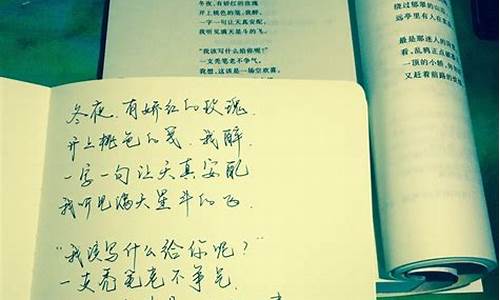 冬夜,有娇红的玫瑰
开上桃色的笺,我醉,
一字一句让天真安配,
我听见满天星斗的飞。
"我该写什么给你呢?"
一支秃笔老不争气。
我想,这该是一场空欢喜,
绕过郁翠的山
远亭里有人在
最是那迷人的
看,乱鸦正点破
一顶的小轿,
又赶着前路的
冬夜,有娇红的玫瑰,
开上桃色的笺,我醉,
一字一句让天真安配
我听见满天星斗的飞.
"我该写什么给你呢?"
一支秃笔老不争气,